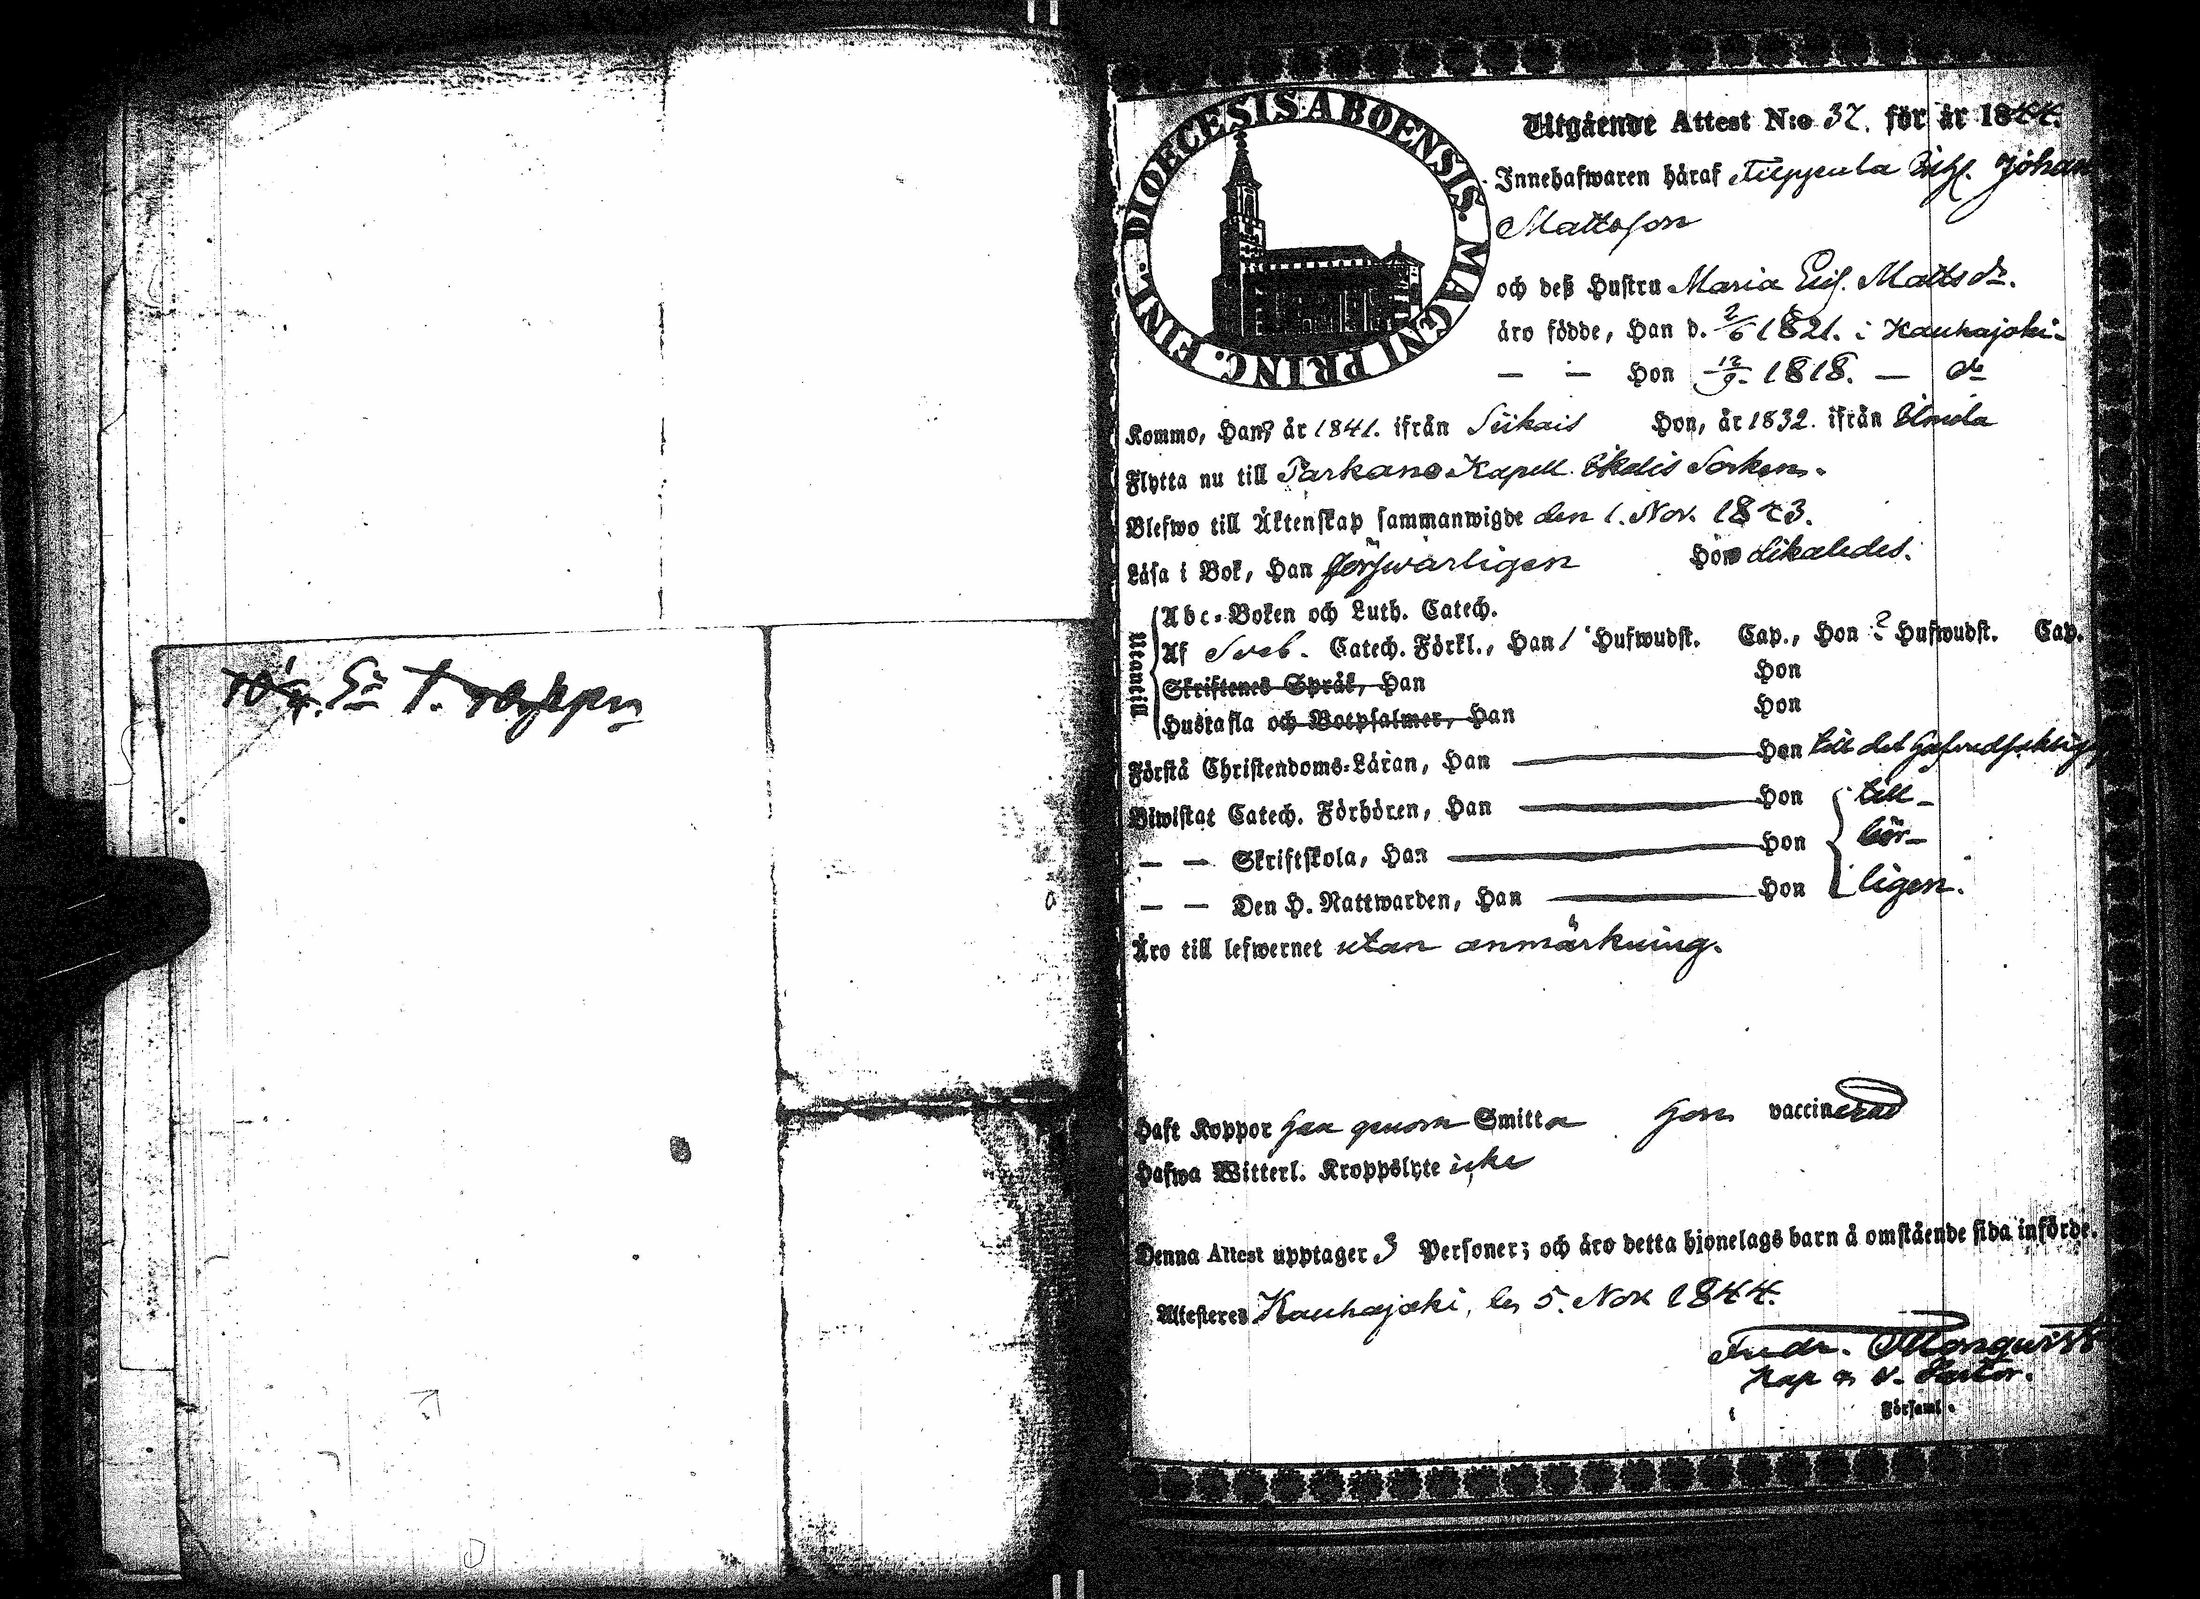 DIOECESIS ABOENSIS. MAGNI PRINC. FINL.
Utgående Attest N:o 37. för år 1844.
Innehafwaren häraf Johan
Mattsson
och deß Hustru Maria Mattsdr.
äro födde, Han d. 2/6 1821. i Kauhajoki
— — Hon 12/9. 1818. — do
Kommo, Han, år 1841. ifrån Siikais Hon, år 1832. ifrån Ilmola
Flytta nu till Parkano Kapell. Ikalis Socken.
Blefwo till Äktenskap sammanwigde den 1. Nov. 1843.
Läsa i Bok, Han försvarligen Hon likaledes.
Utantill
Abc-Boken och Luth. Catech.
Af Sveb. Catech. Förkl., Han 1 Hufwudst. Cap., Hon 2 Hufwudst. Cap.
Skriftenes Språk, Han Hon
Hustafla och Botpsalmer, Han Hon
Förstå Christendoms-Läran, Han Hon till det
Biwistat Catech. Förhören, Han Hon till-
— — Skriftskola, Han Hon bör-
— — Den H. Nattwarden, Han Hon ligen.
Äro till lefwernet utan anmärkning.
Haft Koppor han genom Smitta hon vaccinerad
Hafwa Witterl. Kroppslyte icke
Denna Attest upptager 3 Personer; och äro detta hjonelags barn å omstående sida införde.
Attesteres Kauhajoki, den 5. Nov. 1844.
Kap o. v. Pastor.
Församl.